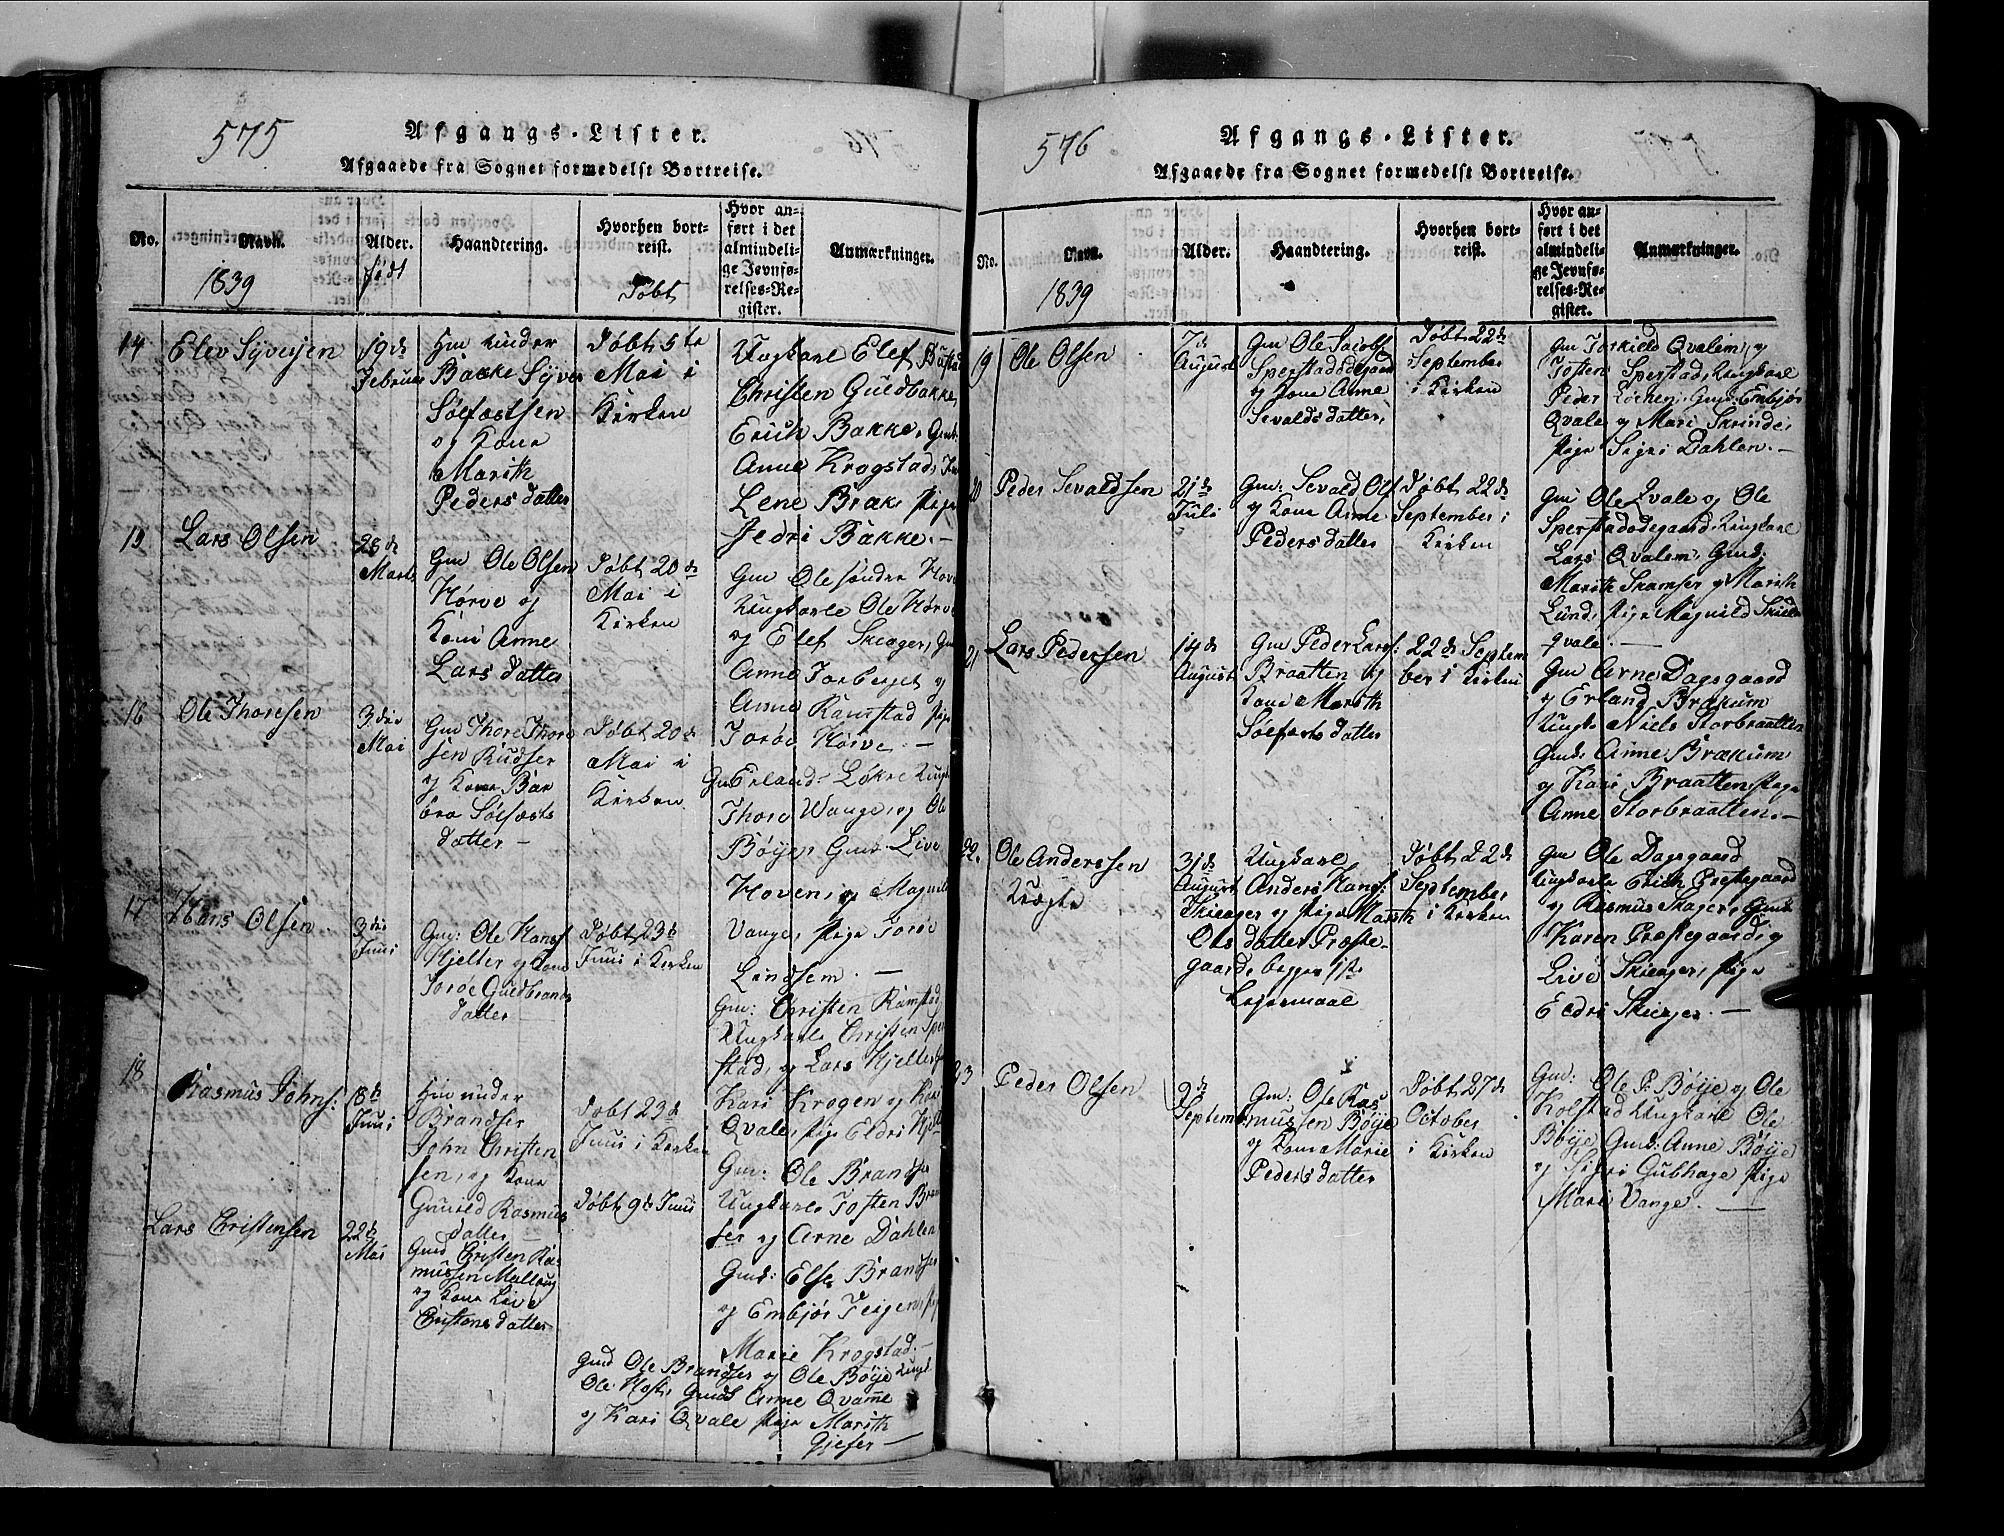 575
Afgangs-Lister.
Afgaaede fra Sognet formedelst Bortreise.
No.
Navn.
1839
Alder.
født
Haandtering.
Hvorhen bort-
reist.
Døbt
Hvor an-
ført i det
almindeli-
ge Jevnfø-
relses-Re-
gister.
Anmærkninger.
14
Elev Syversen
19de
Februar
Hm under
Bakke Syver
Sølfæstsen
og Kone
Marith
Peders datter
Døbt 5te
Mai i
Kirken
Ungkarle Elef
Christen Guldbakke,
Erich Bakke, Gmk.
Anne Krogstad,
Lene Brak Pige
Jedri Bakke. —
15
Lars Olsen
28de
Marts
Gm Ole Olsen
Hørve og
Kone Anne
Lars datter
Døbt 20de
Mai i
Kirken
Gm Ole søndre Hove
Ungkarle Ole Hørve
og Elef Skieager,
Anne Forberget og
Anne Ramstad Pige
Toroe Hørve. —
16
Ole Thoresen
3die
Mai
Gm Thore Thore
sen Rudser
og Kone Bar
bra Sølfæsts
datter —
Døbt 20de
Mai i
Kirken
Gm Erland Løkre Ungk
Thore Wange, og Ole
Bøye, Gmk. Live
Hoven, og Magnild
Vange, Pige Toroe
Lindsem. —
17
Hans Olsen
3die
Juni
Gm: Ole Hanss
Hjelter og Kone
Toroe Guldbrands
datter
Døbt 23de
Juni i Kirken
Gm: Christen Ramstad,
Ungkarle Christen Sper
stad, og Lars Hjelter,
Kari Krogen og Kari
Qvale, Pige Eldri Hjelt
18
Rasmus Johns:
18de
Juni
Hm under
Brandser
John Christen
sen, og Kone
Gunild Rasmus
datter —
Døbt 23de
Juni i Kirken
Gm: Ole Brandser
Ungkarle Josten Brand
ser og Arne Dahlen
Gmk: Else Brandser
og Embjør Teigen,
Marie Krogstad. —
Lars Christensen
22de
Mai
Gmd Christen Ras
mussen Mallaug
og Kone Live
Christens datter
Døbt 9de Juni
Gmd Ole Brandser og Ole Bøye Ungk
Ole Gmk Anne Qvamme
og Kari Qvale Pige Marith
Gjeser —
576
Afgangs-Lister.
Afgaaede fra Sognet formedelst Bortreise.
No.
Navn.
1839
Alder.
Haandtering.
Hvorhen bort-
reist.
Hvor an-
ført i det
almindeli-
ge Jevnfø-
relses-Re-
gister.
Anmærkninger.
19
Ole Olsen
7de
August
Gm Ole Jacobs
Sperstadødegaard
og Kone Anne
Sevalds datter,
Døbt 22de
September
i Kirken
Gm Torkield Qvalem, og
Josten Sperstad, Ungkarl
Peder Løchen, Gmk: Embjør
Qvale og Mari Skrinde,
Pige Sigri Dahlen. —
20
Peder Sevaldsen
21de
Juli
Gm: Sevald Ols
og Kone Anne
Peders datter
Døbt 22de
September i
Kirken
Gm Ole Qvale og Ole
Sperstadødegaard, Ungkarl
Lars Qvalem, Gmk:
Marith Skamser og Marith
Lund, Pige Magnild Skiel
qvale. —
21
Lars Pedersen
14de
August
Gm Peder Lars:
Braatten og
Kone Marith
Sølfæsts datter
22de Septem
ber i Kirken
Gm Arne Dagsgaard
og Erland Brækum
Ungk. Niels Storbraatten
Gmk: Anne Brækum
og Kari Braatten Pige
Anne Storbraatten. —
22.
Ole Anderssen
Uægte
31de
August
Ungkarl
Anders Hans:
Skieager og Pige Marith
Ols datter Præste-
gaard, begges 1ste
Lejermaal
Døbt 22de
September
i Kirken
Gm Ole Dagsgaard
Ungkarle Erich Præstegaard
og Rasmus Skager, Gmk
Karen Præstegaard og
Live Skieager, Pige
Eldri Skieager. —
23
Peder Olsen
2de
Septemb
Gm: Ole Ras
mussen Bøye
og Kone Marie
Peders datter
Døbt 27de
October
i Kirken
Gm: Ole P. Bøye og Ole
Kolstad Ungkarl Ole
Bøye, Gmk: Anne Bøye
og Sigri Gubhage Pige
Mari Vange. —